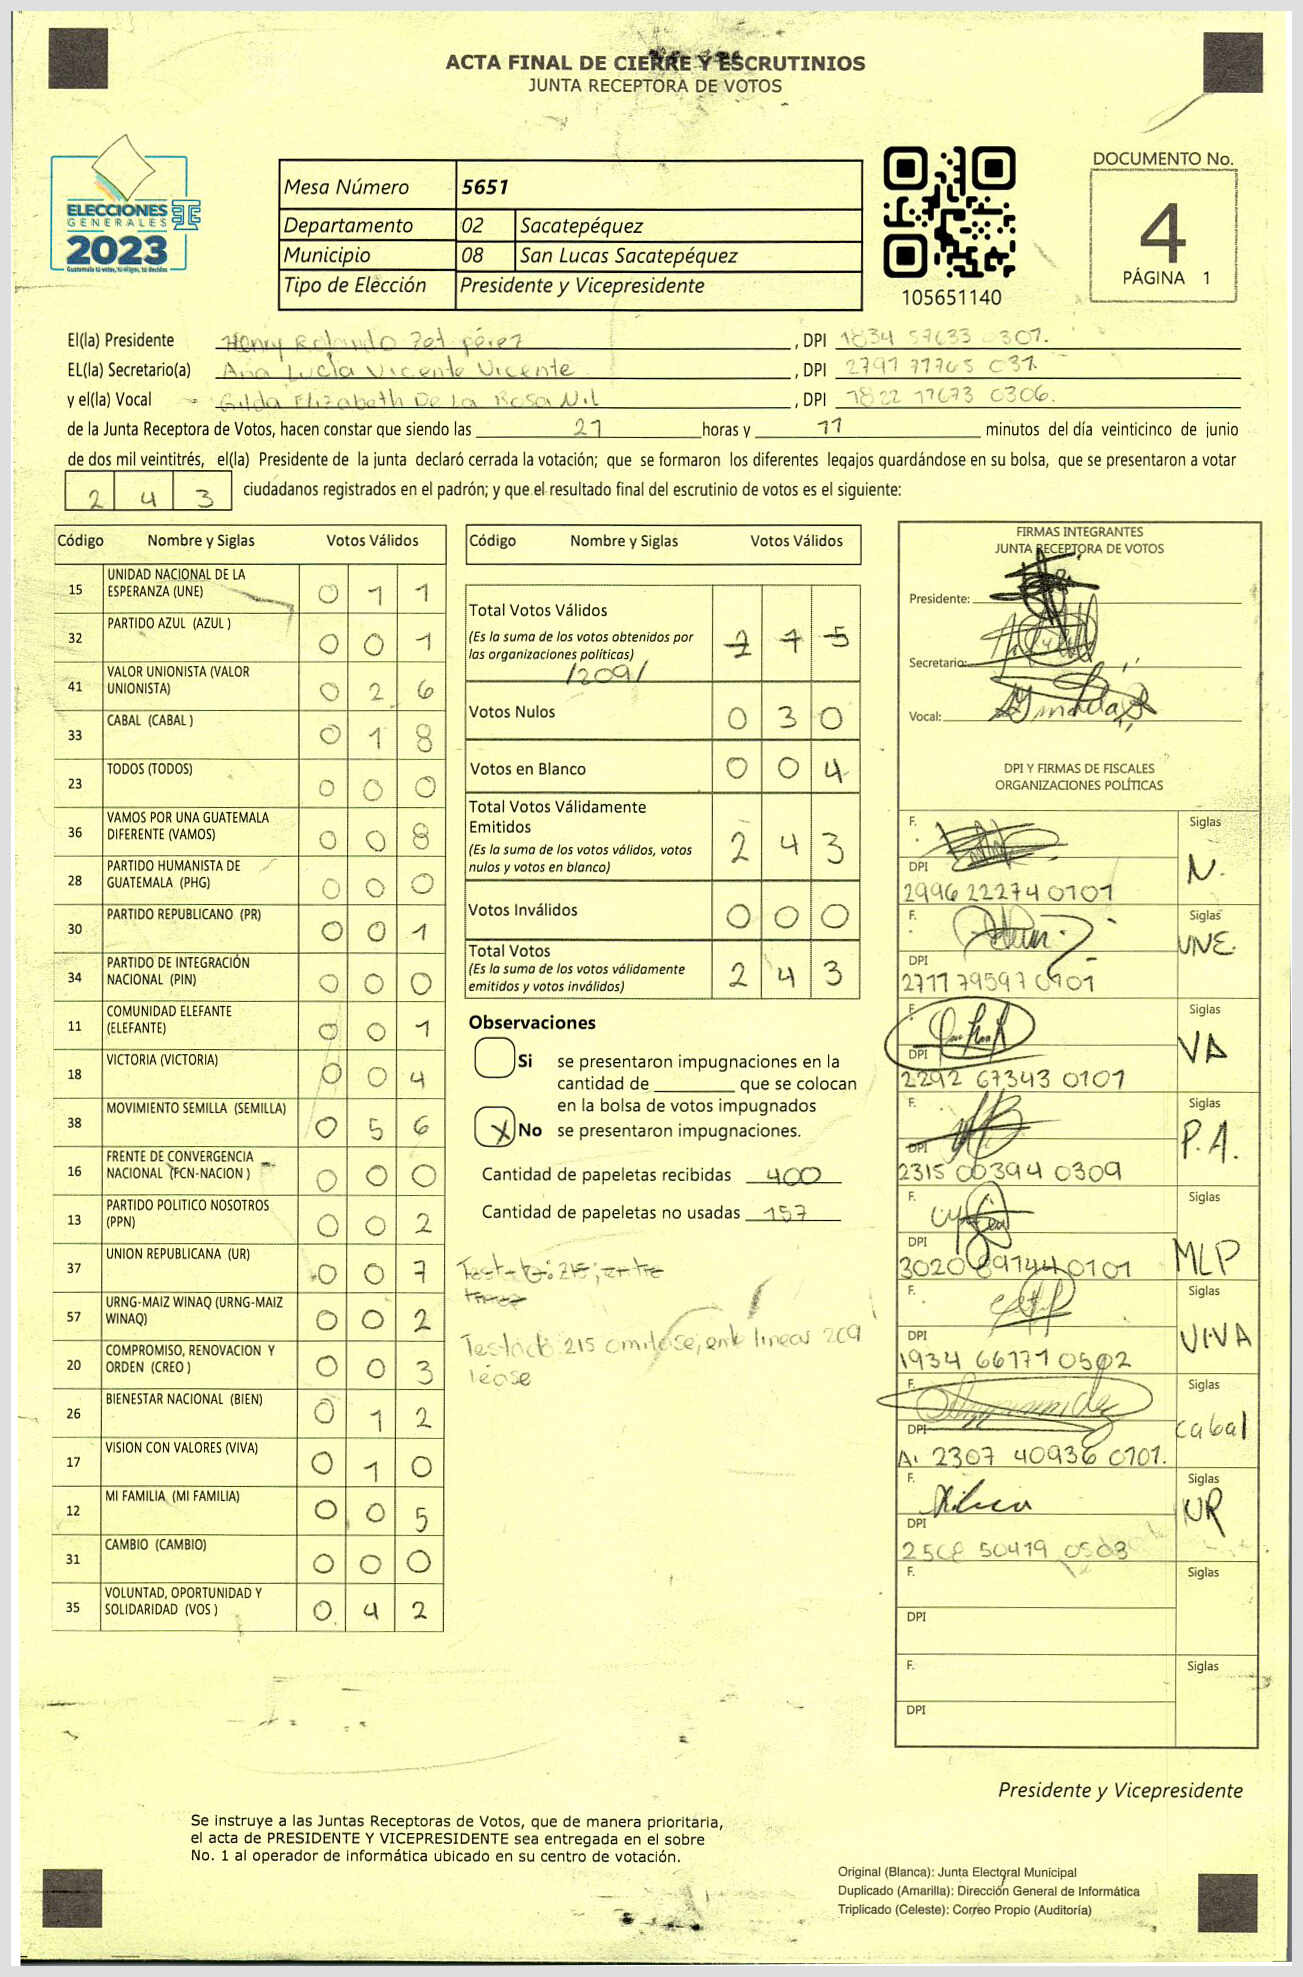 ACTA FINAL DE CIERRE Y ESCRUTINIOS
JUNTA RECEPTORA DE VOTOS
ELECCIONES
GENERALES
2023
Guatemala tú votas, tú eliges, tú decides
Mesa Número 5651
Departamento 02 Sacatepéquez
Municipio 08 San Lucas Sacatepéquez
Tipo de Elección Presidente y Vicepresidente
105651140
DOCUMENTO No.
4
PÁGINA 1
El(la) Presidente Henry Rolando Zet pérez, DPI 1834 57633 0307.
EL(la) Secretario(a) Ana Lucía Vicente Vicente, DPI 2797 77765 031.
y el(la) Vocal Gilda Elizabeth De La Rosa Nil, DPI 1822 17673 0306.
de la Junta Receptora de Votos, hacen constar que siendo las 21 horas y 11 minutos del día veinticinco de junio
de dos mil veintitrés, el(la) Presidente de la junta declaró cerrada la votación; que se formaron los diferentes legajos guardándose en su bolsa, que se presentaron a votar
2 4 3 ciudadanos registrados en el padrón; y que el resultado final del escrutinio de votos es el siguiente:
Código Nombre y Siglas Votos Válidos
15 UNIDAD NACIONAL DE LA ESPERANZA (UNE) 0 1 1
32 PARTIDO AZUL (AZUL ) 0 0 1
41 VALOR UNIONISTA (VALOR UNIONISTA) 0 2 6
33 CABAL (CABAL ) 0 1 8
23 TODOS (TODOS) 0 0 0
36 VAMOS POR UNA GUATEMALA DIFERENTE (VAMOS) 0 0 8
28 PARTIDO HUMANISTA DE GUATEMALA (PHG) 0 0 0
30 PARTIDO REPUBLICANO (PR) 0 0 1
34 PARTIDO DE INTEGRACIÓN NACIONAL (PIN) 0 0 0
11 COMUNIDAD ELEFANTE (ELEFANTE) 0 0 1
18 VICTORIA (VICTORIA) 0 0 4
38 MOVIMIENTO SEMILLA (SEMILLA) 0 5 6
16 FRENTE DE CONVERGENCIA NACIONAL (FCN-NACION ) 0 0 0
13 PARTIDO POLITICO NOSOTROS (PPN) 0 0 2
37 UNION REPUBLICANA (UR) 0 0 7
57 URNG-MAIZ WINAQ (URNG-MAIZ WINAQ) 0 0 2
20 COMPROMISO, RENOVACION Y ORDEN (CREO ) 0 0 3
26 BIENESTAR NACIONAL (BIEN) 0 1 2
17 VISION CON VALORES (VIVA) 0 1 0
12 MI FAMILIA (MI FAMILIA) 0 0 5
31 CAMBIO (CAMBIO) 0 0 0
35 VOLUNTAD, OPORTUNIDAD Y SOLIDARIDAD (VOS ) 0 4 2
Código Nombre y Siglas Votos Válidos
Total Votos Válidos
(Es la suma de los votos obtenidos por
las organizaciones políticas)
/209/
Votos Nulos 0 3 0
Votos en Blanco 0 0 4
Total Votos Válidamente
Emitidos 2 4 3
(Es la suma de los votos válidos, votos
nulos y votos en blanco)
Votos Inválidos 0 0 0
Total Votos 2 4 3
(Es la suma de los votos válidamente
emitidos y votos inválidos)
Observaciones
Si se presentaron impugnaciones en la
cantidad de que se colocan
en la bolsa de votos impugnados
X No se presentaron impugnaciones.
Cantidad de papeletas recibidas 400
Cantidad de papeletas no usadas 157
Testado: 215; entre
Testado 215 omitase, ente lineas 209
léase
FIRMAS INTEGRANTES
JUNTA RECEPTORA DE VOTOS
Presidente:
Secretario:
Vocal:
DPI Y FIRMAS DE FISCALES
ORGANIZACIONES POLÍTICAS
F. Siglas
N.
DPI
2996 22274 0101
F. Siglas
UNE.
DPI
2711 79597 0101
F. Siglas
VA
DPI
2292 67343 0101
F. Siglas
P.A.
DPI
2315 00394 0309
F. Siglas
MLP
DPI
3020 89744 0101
F. Siglas
VIVA
DPI
1934 66171 0502
F. Siglas
cabal
DPI
A. 2307 40936 0101.
F. Siglas
UR
DPI
2508 50419 0503
F. Siglas
DPI
F. Siglas
DPI
Presidente y Vicepresidente
Se instruye a las Juntas Receptoras de Votos, que de manera prioritaria,
el acta de PRESIDENTE Y VICEPRESIDENTE sea entregada en el sobre
No. 1 al operador de informática ubicado en su centro de votación.
Original (Blanca): Junta Electoral Municipal
Duplicado (Amarilla): Dirección General de Informática
Triplicado (Celeste): Correo Propio (Auditoría)